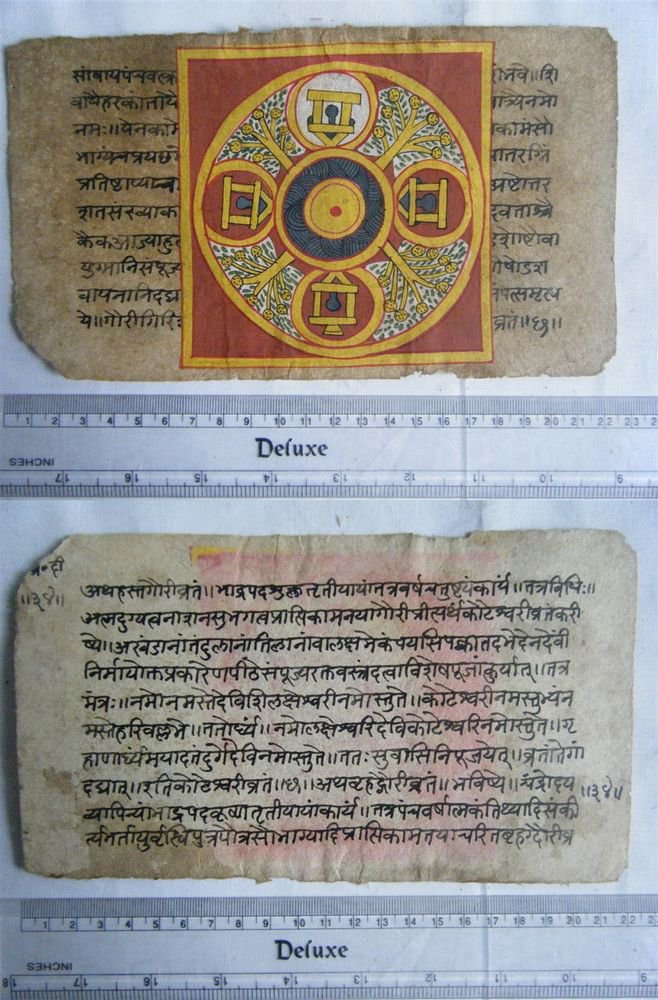 सांबायपंचवत्क रीभवे॥शि
वायैहरकांतायै नात्र्यैनमो
नमः॥येनकामे कामंसौ
भाग्यंचप्रयछ प्रातरग्निं
प्रतिष्ठाप्याच्च प्रष्टोत्तर
शतसंख्याक देवताश्चै
कैकआज्याहु
युग्मानिसंपूज्य षोडश
वायनानिदद्या संपत्समृत्ध
ये॥गौरीगिरि व्रतं॥छ॥
1 2 3 4 5 6 7 8 9 10 11 12 13 14 15 16 17 18 19 20 21 22 23
Deluxe
INCHES
17 16 15 14 13 12 11 10 9
व्र॰दी
॥३४॥
अथहस्तगौरीव्रतं॥भाद्रपदशुक्लतृतीयायांतत्रवर्षचतुष्टयंकार्यं॥तत्रविधिः॥
नाशनसुभगत्वप्राप्तिकामनयागौरीप्रीत्यर्थंकोटेश्वरीव्रतंकरि
ष्ये॥अखंडानांतंदुलानांतिलानांवालक्षमेकंपयसिपक्कातदभेदेनदेवीं
निर्मायोक्तप्रकारेणपीठेसंपूज्यरक्तवस्त्रंदत्वाविशेषपूजांकुर्यात्॥तत्र
मंत्रः॥नमोनमस्तेदेविशिलक्षेश्वरीनमोस्तुते॥कोटेश्वरीनमस्तुभ्यंन
मस्तेहरिवल्लभे॥ततोर्घ्यं॥नमोलक्षेश्वरिदेविकोटेश्वरिनमोस्तुते॥गृ
हाणार्घ्यंमयादत्तंदुर्गेदेविनमोस्तुते॥ततःसुवासिनिपूजयेत्॥व्रतांतेगां
दद्यात्॥इतिकोटेश्वरीव्रतं॥छ॥अथबृहद्गौरीव्रतं॥भविष्ये॥चंद्रोदय ॥३४॥
व्यापिन्यांभाद्रपदकृष्णतृतीयायांकार्यं॥तत्रपंचवर्षात्मकंतिथ्यादिसंकी
र्त्यभर्तायुर्वृत्धिपुत्रपौत्रसौभाग्यादिप्राप्तिकामनयाचरितबृहग्दौरीव्र
1 2 3 4 5 6 7 8 9 10 11 12 13 14 15 16 17 18 19 20 21 22 2
Deluxe
INCHES
18 17 16 15 14 13 12 11 10 9